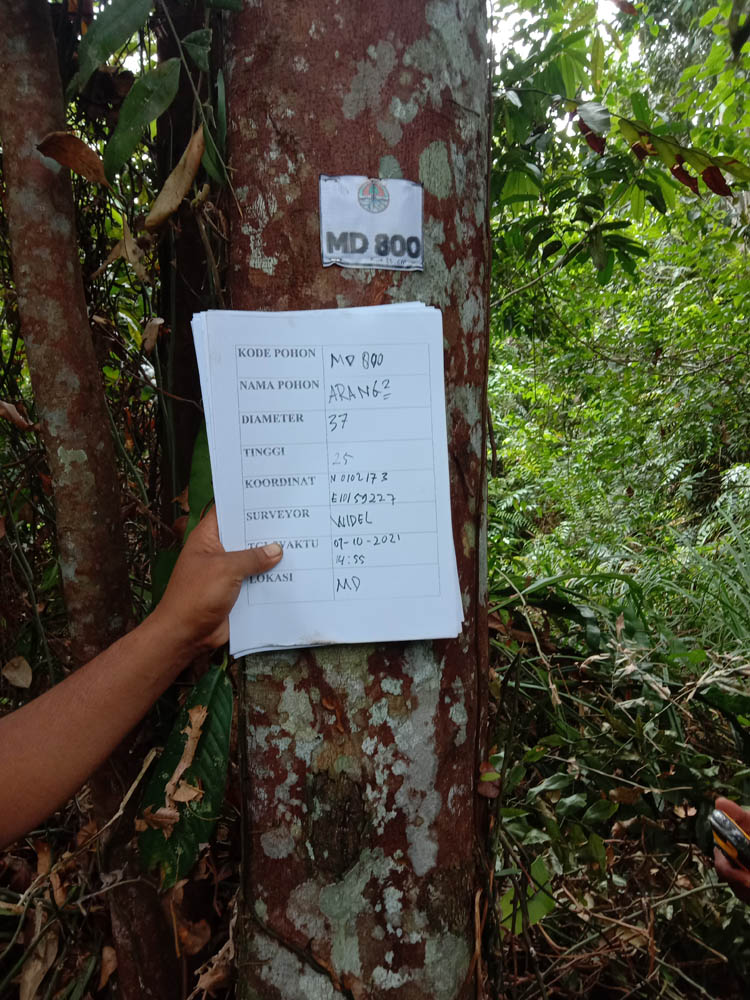 MD 800
KODE POHON MD 800
NAMA POHON ARANG2
DIAMETER 37
TINGGI 25
KOORDINAT N 0102173
E10159227
SURVEYOR WIDEL
09-10-2021
14:55
LOKASI MD